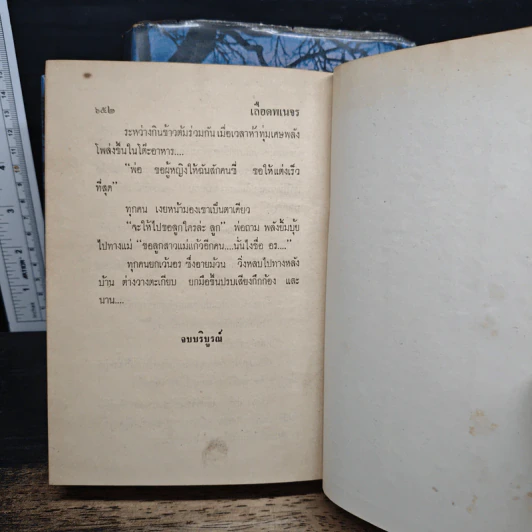 ๖๕๒
เลือดพเนจร
ระหว่างกินข้าวต้มร่วมกัน เมื่อเวลาห้าทุ่มเศษพลัง
โพล่งขึ้นในโต๊ะอาหาร....
"พ่อ ขอผู้หญิงให้ฉันสักคนซี่ ขอให้แต่งเร็ว
ที่สุด"
ทุกคน เงยหน้ามองเขาเป็นตาเดียว
"จะให้ไปขอลูกใครล่ะ ลูก" พ่อถาม พลังยิ้มบุ้ย
ไปทางแม่ "ขอลูกสาวแม่แก้วอีกคน....นั่นไงชื่อ อร...."
ทุกคนยกเว้นอร ซึ่งอายม้วน วิ่งหลบไปทางหลัง
บ้าน ต่างวางตะเกียบ ยกมือขึ้นปรบเสียงกึกก้อง และ
นาน....
จบบริบูรณ์